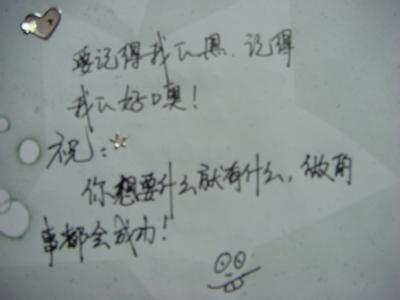 要记得我们恩.记得
我们好口奥!
祝:
你想要什么就有什么,做的
事都会成功!